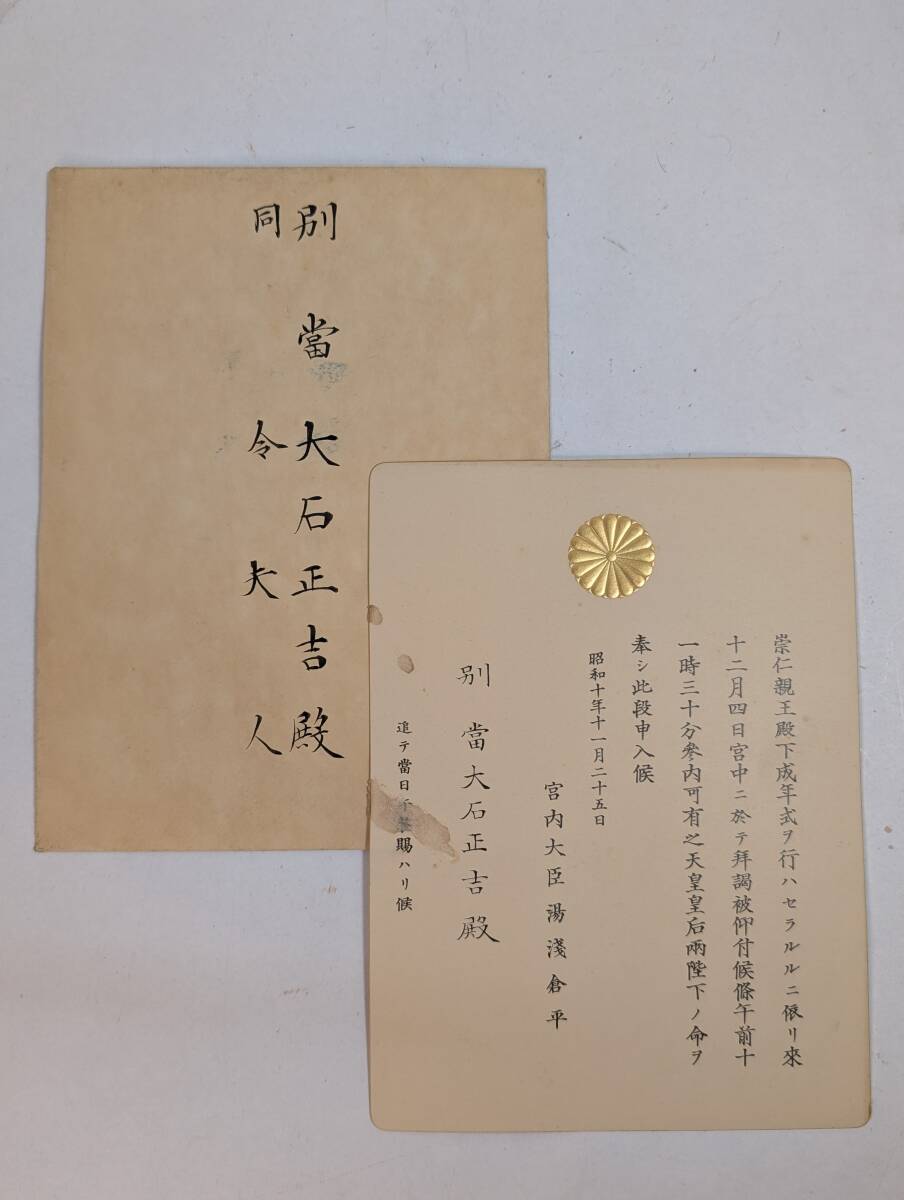 別當大石正吉殿
同令夫人
崇仁親王殿下成年式ヲ行ハセラルルニ依リ來
十二月四日宮中ニ於テ拜謁被仰付候條午前十
一時三十分參內可有之天皇皇后兩陛下ノ命ヲ
奉シ此段申入候
昭和十年十一月二十五日
宮內大臣湯淺倉平
別當大石正吉殿
追テ當日午餐賜ハリ候